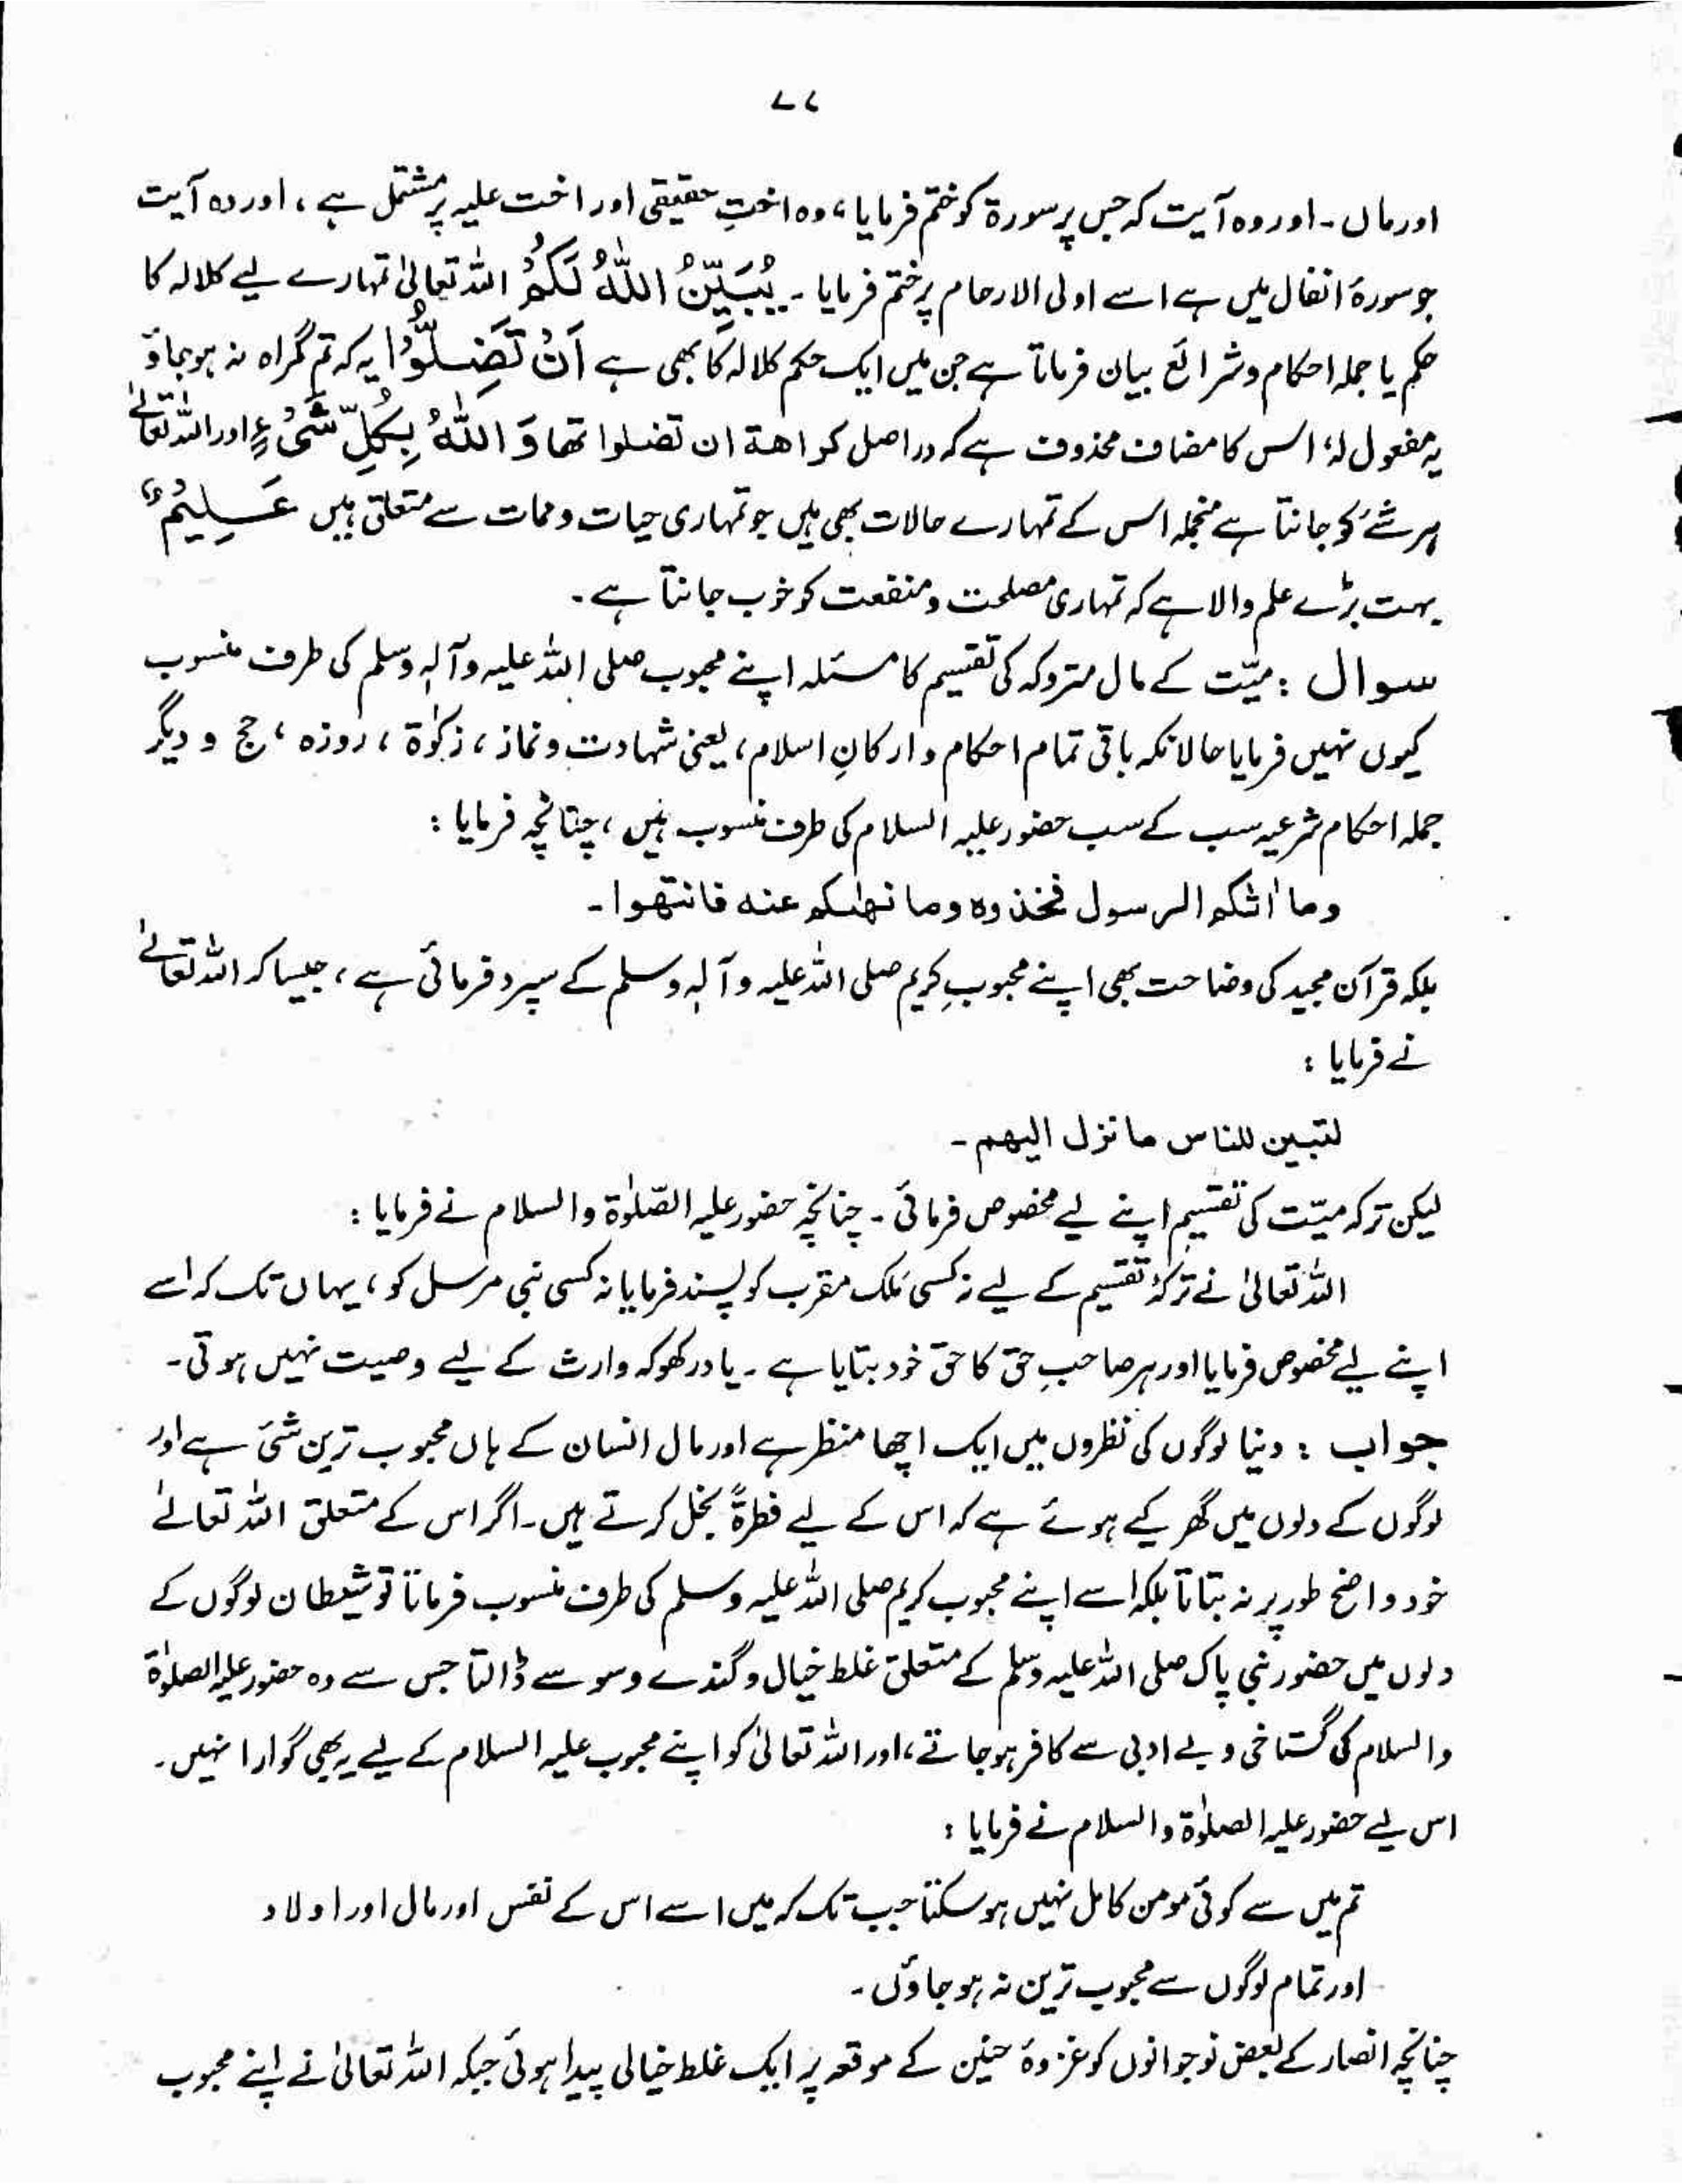 ۷۷
اور ماں ۔ اور وہ آیت کہ جس پر سورۃ کو ختم فرمایا ، وہ اختِ حقیقی اور اخت علیہ پر مشتمل ہے ، اور وہ آیت
جو سورۂ انفال میں ہے اسے اولی الارحام پر ختم فرمایا ۔ یُبَیِّنُ اللّٰہُ لَکُمْ اللہ تعالیٰ تمہارے لیے کلالہ کا
حکم یا جملہ احکام و شرائع بیان فرماتا ہے جن میں ایک حکم کلالہ کا بھی ہے اَنْ تَضِلُّوْا یہ کہ تم گمراہ نہ ہو جاؤ
یہ مفعول لہٗ اس کا مضاف محذوف ہے کہ دراصل کراھة ان تضلوا تھا وَ اللّٰہُ بِکُلِّ شَیْءٍ اور اللہ تعالیٰ
ہر شے کو جانتا ہے منجملہ اس کے تمہارے حالات بھی ہیں جو تمہاری حیات و ممات سے متعلق ہیں عَلِیْمٌ
بہت بڑے علم والا ہے کہ تمہاری مصلحت و منفعت کو خوب جانتا ہے ۔
سوال : میّت کے مال متروکہ کی تقسیم کا مسئلہ اپنے محبوب صلی اللہ علیہ وآلہ وسلم کی طرف منسوب
کیوں نہیں فرمایا حالانکہ باقی تمام احکام و ارکانِ اسلام ، یعنی شہادت و نماز ، زکوٰۃ ، روزہ ، حج و دیگر
جملہ احکام شرعیہ سب کے سب حضور علیہ السلام کی طرف منسوب ہیں ، چنانچہ فرمایا :
وما اٰتٰکم الرسول فخذوه وما نھٰکم عنه فانتھوا ۔
بلکہ قرآن مجید کی وضاحت بھی اپنے محبوبِ کریم صلی اللہ علیہ وآلہ وسلم کے سپرد فرمائی ہے ، جیسا کہ اللہ تعالیٰ
نے فرمایا :
لتبین للناس ما نزل الیھم ۔
لیکن ترکہ میّت کی تقسیم اپنے لیے مخصوص فرمائی ۔ چنانچہ حضور علیہ الصّلوٰۃ والسلام نے فرمایا :
اللہ تعالیٰ نے ترکۂ تقسیم کے لیے نہ کسی مَلک مقرب کو پسند فرمایا نہ کسی نبی مرسل کو ، یہاں تک کہ اسے
اپنے لیے مخصوص فرمایا اور ہر صاحبِ حق کا حق خود بتایا ہے ۔ یاد رکھو کہ وارث کے لیے وصیت نہیں ہوتی ۔
جواب : دنیا لوگوں کی نظروں میں ایک اچھا منظر ہے اور مال انسان کے ہاں محبوب ترین شئ ہے اور
لوگوں کے دلوں میں گھر کیے ہوئے ہے کہ اس کے لیے فطرۃً بخل کرتے ہیں ۔ اگر اس کے متعلق اللہ تعالےٰ
خود واضح طور پر نہ بتاتا بلکہ اسے اپنے محبوب کریم صلی اللہ علیہ وسلم کی طرف منسوب فرماتا تو شیطان لوگوں کے
دلوں میں حضور نبی پاک صلی اللہ علیہ وسلم کے متعلق غلط خیال و گندے وسوسے ڈالتا جس سے وہ حضور علیہ الصلوٰۃ
والسلام کی گستاخی و بے ادبی سے کافر ہو جاتے ، اور اللہ تعالیٰ کو اپنے محبوب علیہ السلام کے لیے یہ بھی گوارا نہیں ۔
اس لیے حضور علیہ الصلوٰۃ والسلام نے فرمایا :
تم میں سے کوئی مومن کامل نہیں ہو سکتا جب تک کہ میں اسے اس کے نفس اور مال اور اولاد
اور تمام لوگوں سے محبوب ترین نہ ہو جاؤں ۔
چنانچہ انصار کے بعض نوجوانوں کو غزوۂ حنین کے موقعہ پر ایک غلط خیالی پیدا ہوئی جبکہ اللہ تعالیٰ نے اپنے محبوب